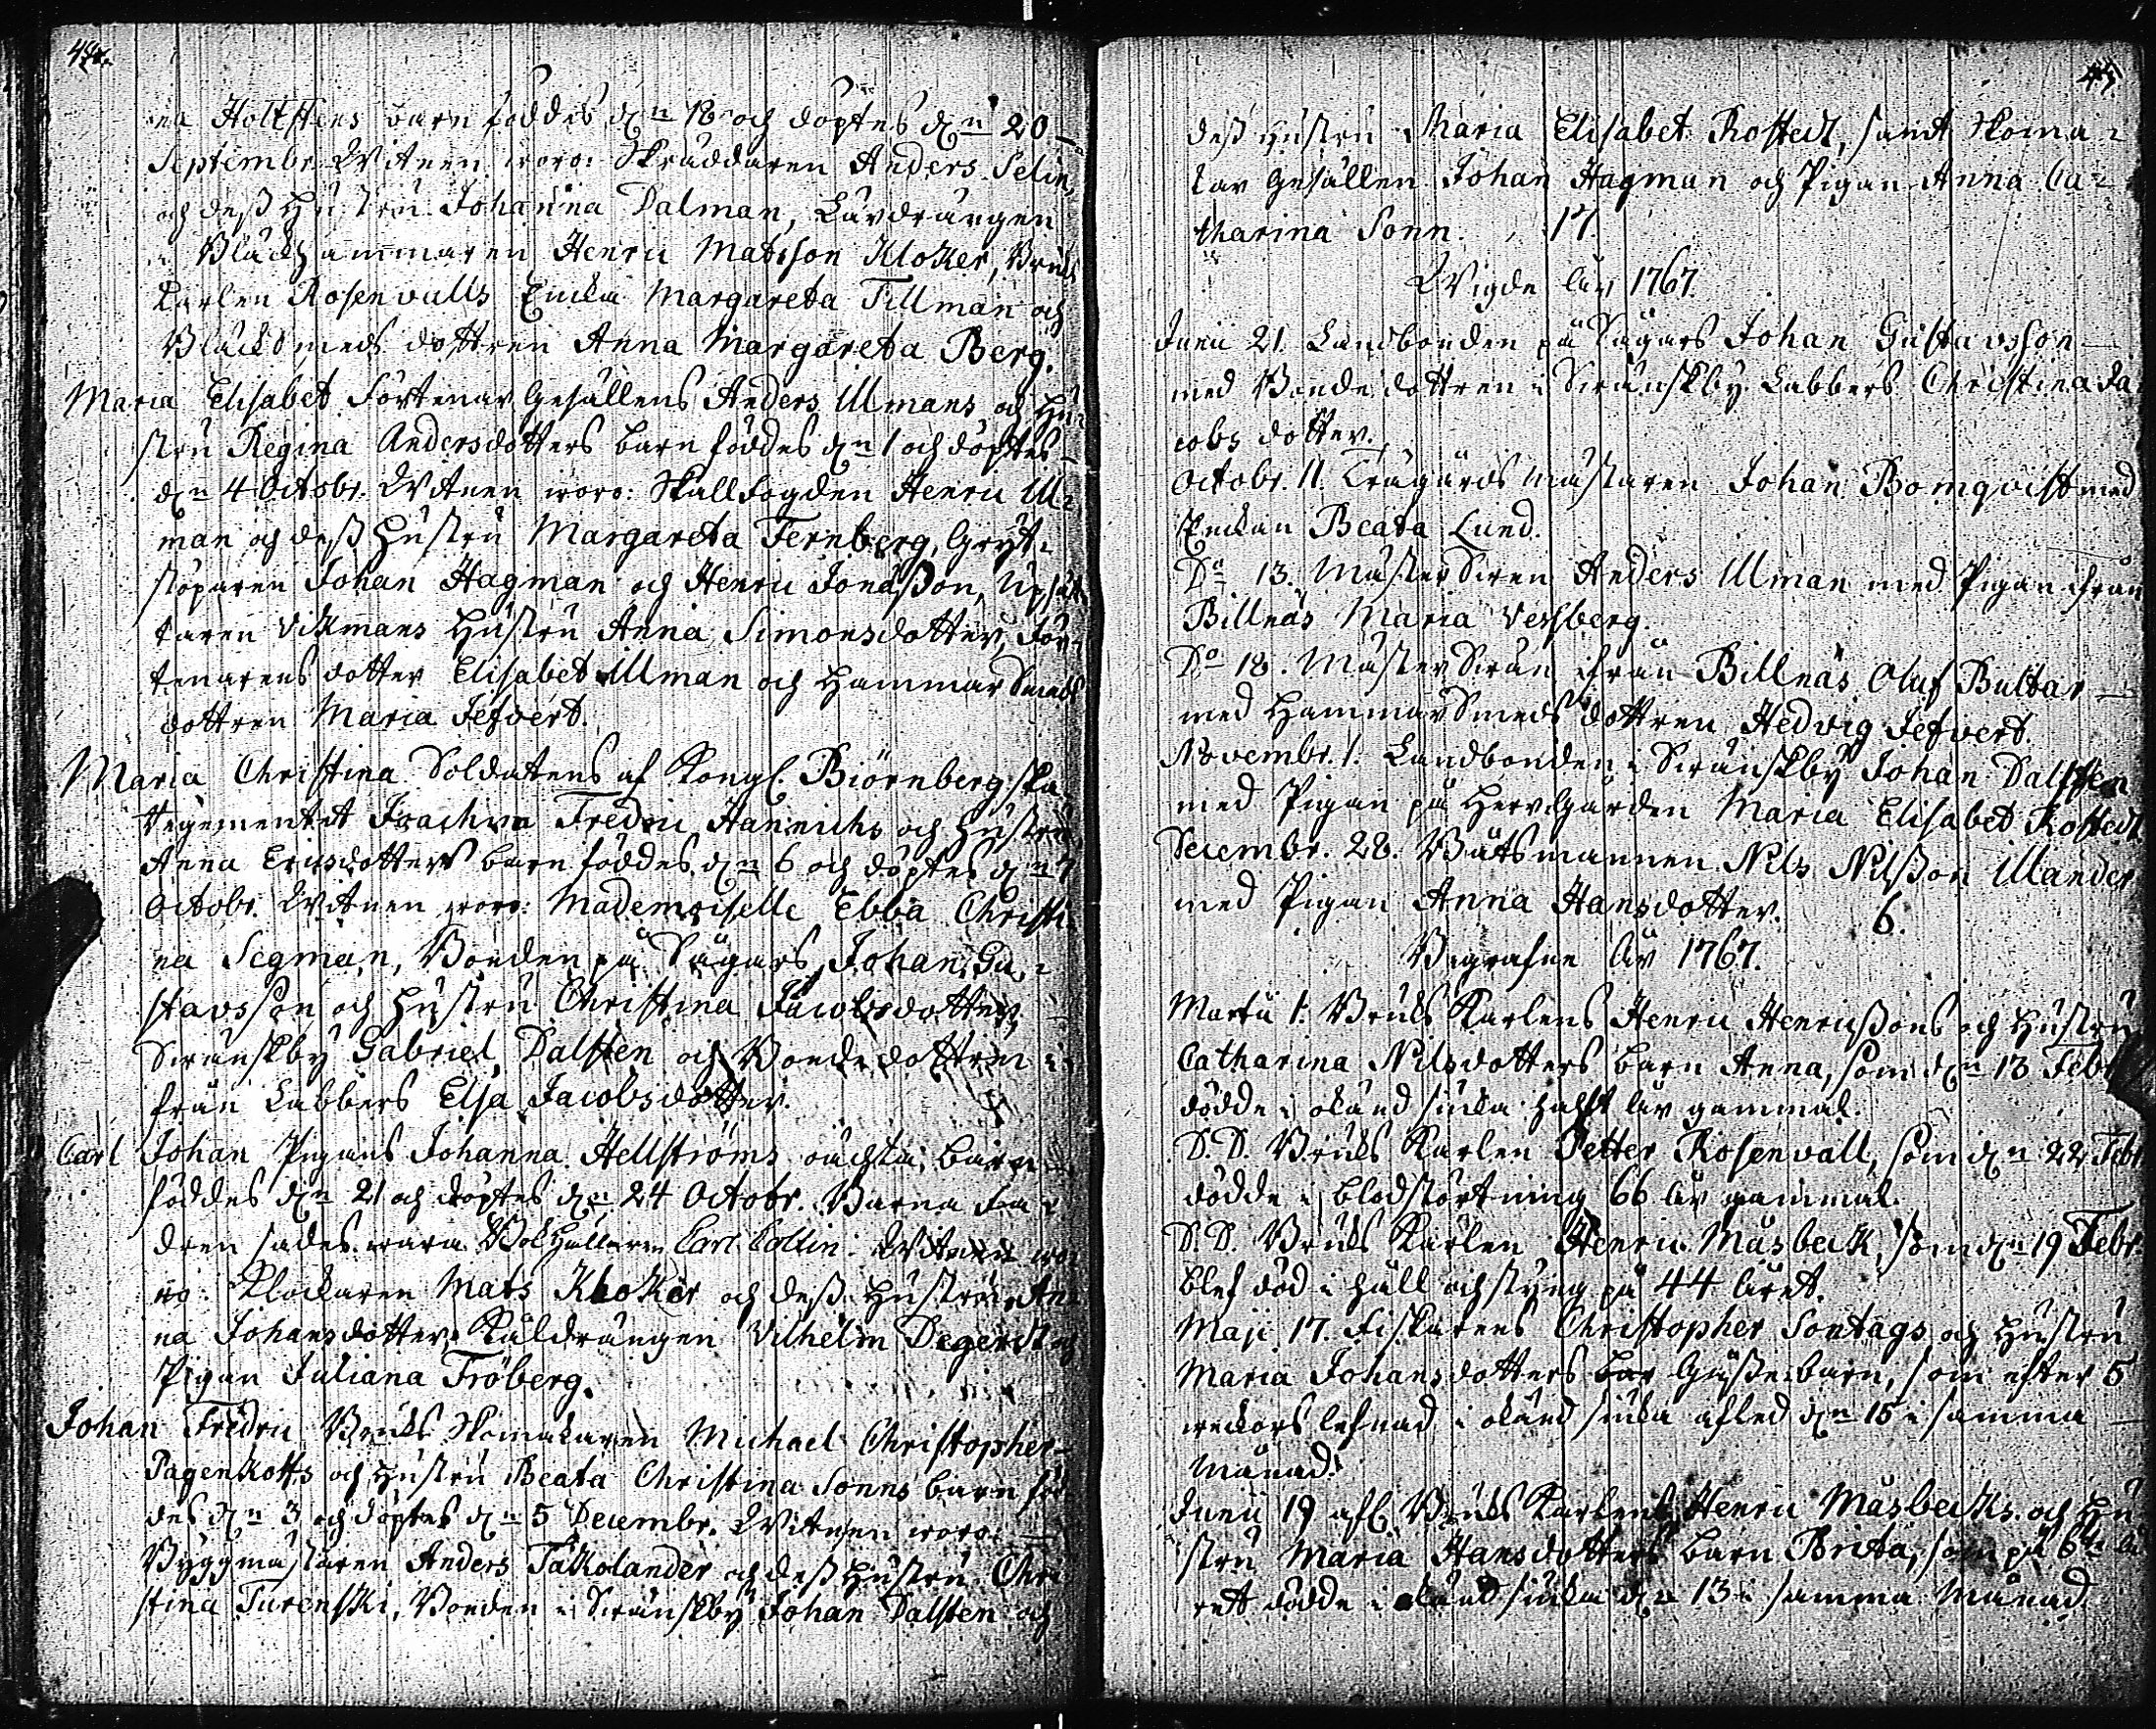 na Holtstens barn föddes dn 18 och döptes dn 20
Septembr. Witnen woro: Skräddaren Anders Selin,
och dess Hustru Johanna Dalman, Lärdrängen
Henric Matsson Kloker, Bruks
Karlen Rosenvalls Encka Margareta Tillman och
dottren Anna Margareta Berg.
Maria Elisabet Förtenar Gesällens Anders Ulmans och Hu-
stru Regina Andersdotters barn föddes dn 1 och döptes
dn 4 Octobr. Witnen woro: Skallfogden Henric Ul-
man och dess Hustru Margareta Fernberg, Gryt-
stöparen Johan Hagman och Henric Jonasson,
Vikmans Hustru Anna Simonsdotter, För-
tenarens dotter Elisabet Ulman och Hammar Smeds
dottren Maria Jefvert.
Maria Christina Soldatens af Kongl. Biörnberg. ska
Regementet Joachim Fredric Hanrichs och Hustru
Anna Ericsdotters barn föddes dn 6 och döptes dn 7
Octobr. Witnen woro: Mademoiselle Ebba Christi-
na Segman, Bonden på Sågars Johan Gu-
stavsson och Hustru Christina Jacobsdotter,
Svänskby Gabriel Dalsten och Bonde dottren
från Labbers Elsa Jacobsdotter.
Carl Johan Pigans Johanna Hellströms oächta barn
föddes dn 21 och döptes dn 24 Octobr. Barna Fa-
dren sades wara Bokhållaren Carl Collin. Witnen wo-
ro: Klockaren Mats Kloker och dess Hustru An-
na Johansdotter, Kåldrängen Vilhelm Degerdt och
Pigan Juliana Fröberg.
Johan Fredric Bruks Skomakaren Michael Christopher
Pagenkotts och Hustru Beata Christina Sonns barn föd-
des dn 3 och döptes dn 5 Decembr. Witnen woro:
Byggmästaren Anders Takolander och dess Hustru Chri-
stina Turenski, Bonden i Svänskby Johan Dalsten och
dess Hustru Maria Elisabet Rostedt, samt Skoma-
kar Gesällen Johan Hagman och Pigan Anna Ca-
tharina Sonn. 17.
Wigde år 1767.
Junii 21. Landbonden på Sågars Johan Gustavsson
med Bonde dottren i Svänskby Labbers Christina Ja-
cobs dotter.
Octobr. 11. Trägårds mästaren Johan Bomqvist med
Enckan Beata Lund.
Do 13. Mästersven Anders Ulman med Pigan ifrån
Billnäs Maria Vessberg.
Do 18. Mästersven ifrån Billnäs Oluf Bultar
med Hammar Smeds dottren Hedvig Jefvert.
Novembr. 1. Landbonden i Svänskby Johan Dalsten
med Pigan på Herrgården Maria Elisabet Rostedt.
Decembr. 28. Båtsmannen Nils Nilsson Ulander
med Pigan Anna Hansdotter. 6.
Begrafne år 1767.
Martii 1. Bruks Karlens Henric Henricssons och Hustru
Catharina Nilsdotters barn Anna, som dn 13 Febr
dödde i okänd siuka halft år gammal.
D. D. Bruks Karlen Petter Rosenvall, som dn 22 Febr
dödde i blodstörtning 66 år gammal.
D. D. Bruks Karlen Henric Mäsbeck, som dn 19 Febr.
blef död i håll och styng på 44 året.
Maji 17. Fiskarens Christopher Sontags och Hustru
Maria Johansdotters bar Gosse barn, som efter 5
weckors lefnad i okänd siuka afled dn 15 i samma
Månad.
Junii 19 afl. Bruks Karlens Henric Mäsbecks och Hu
stru Maria Hansdotters barn Brita, som på 6te å
ret dödde i okänd siuka dn 13 i samma Månad.